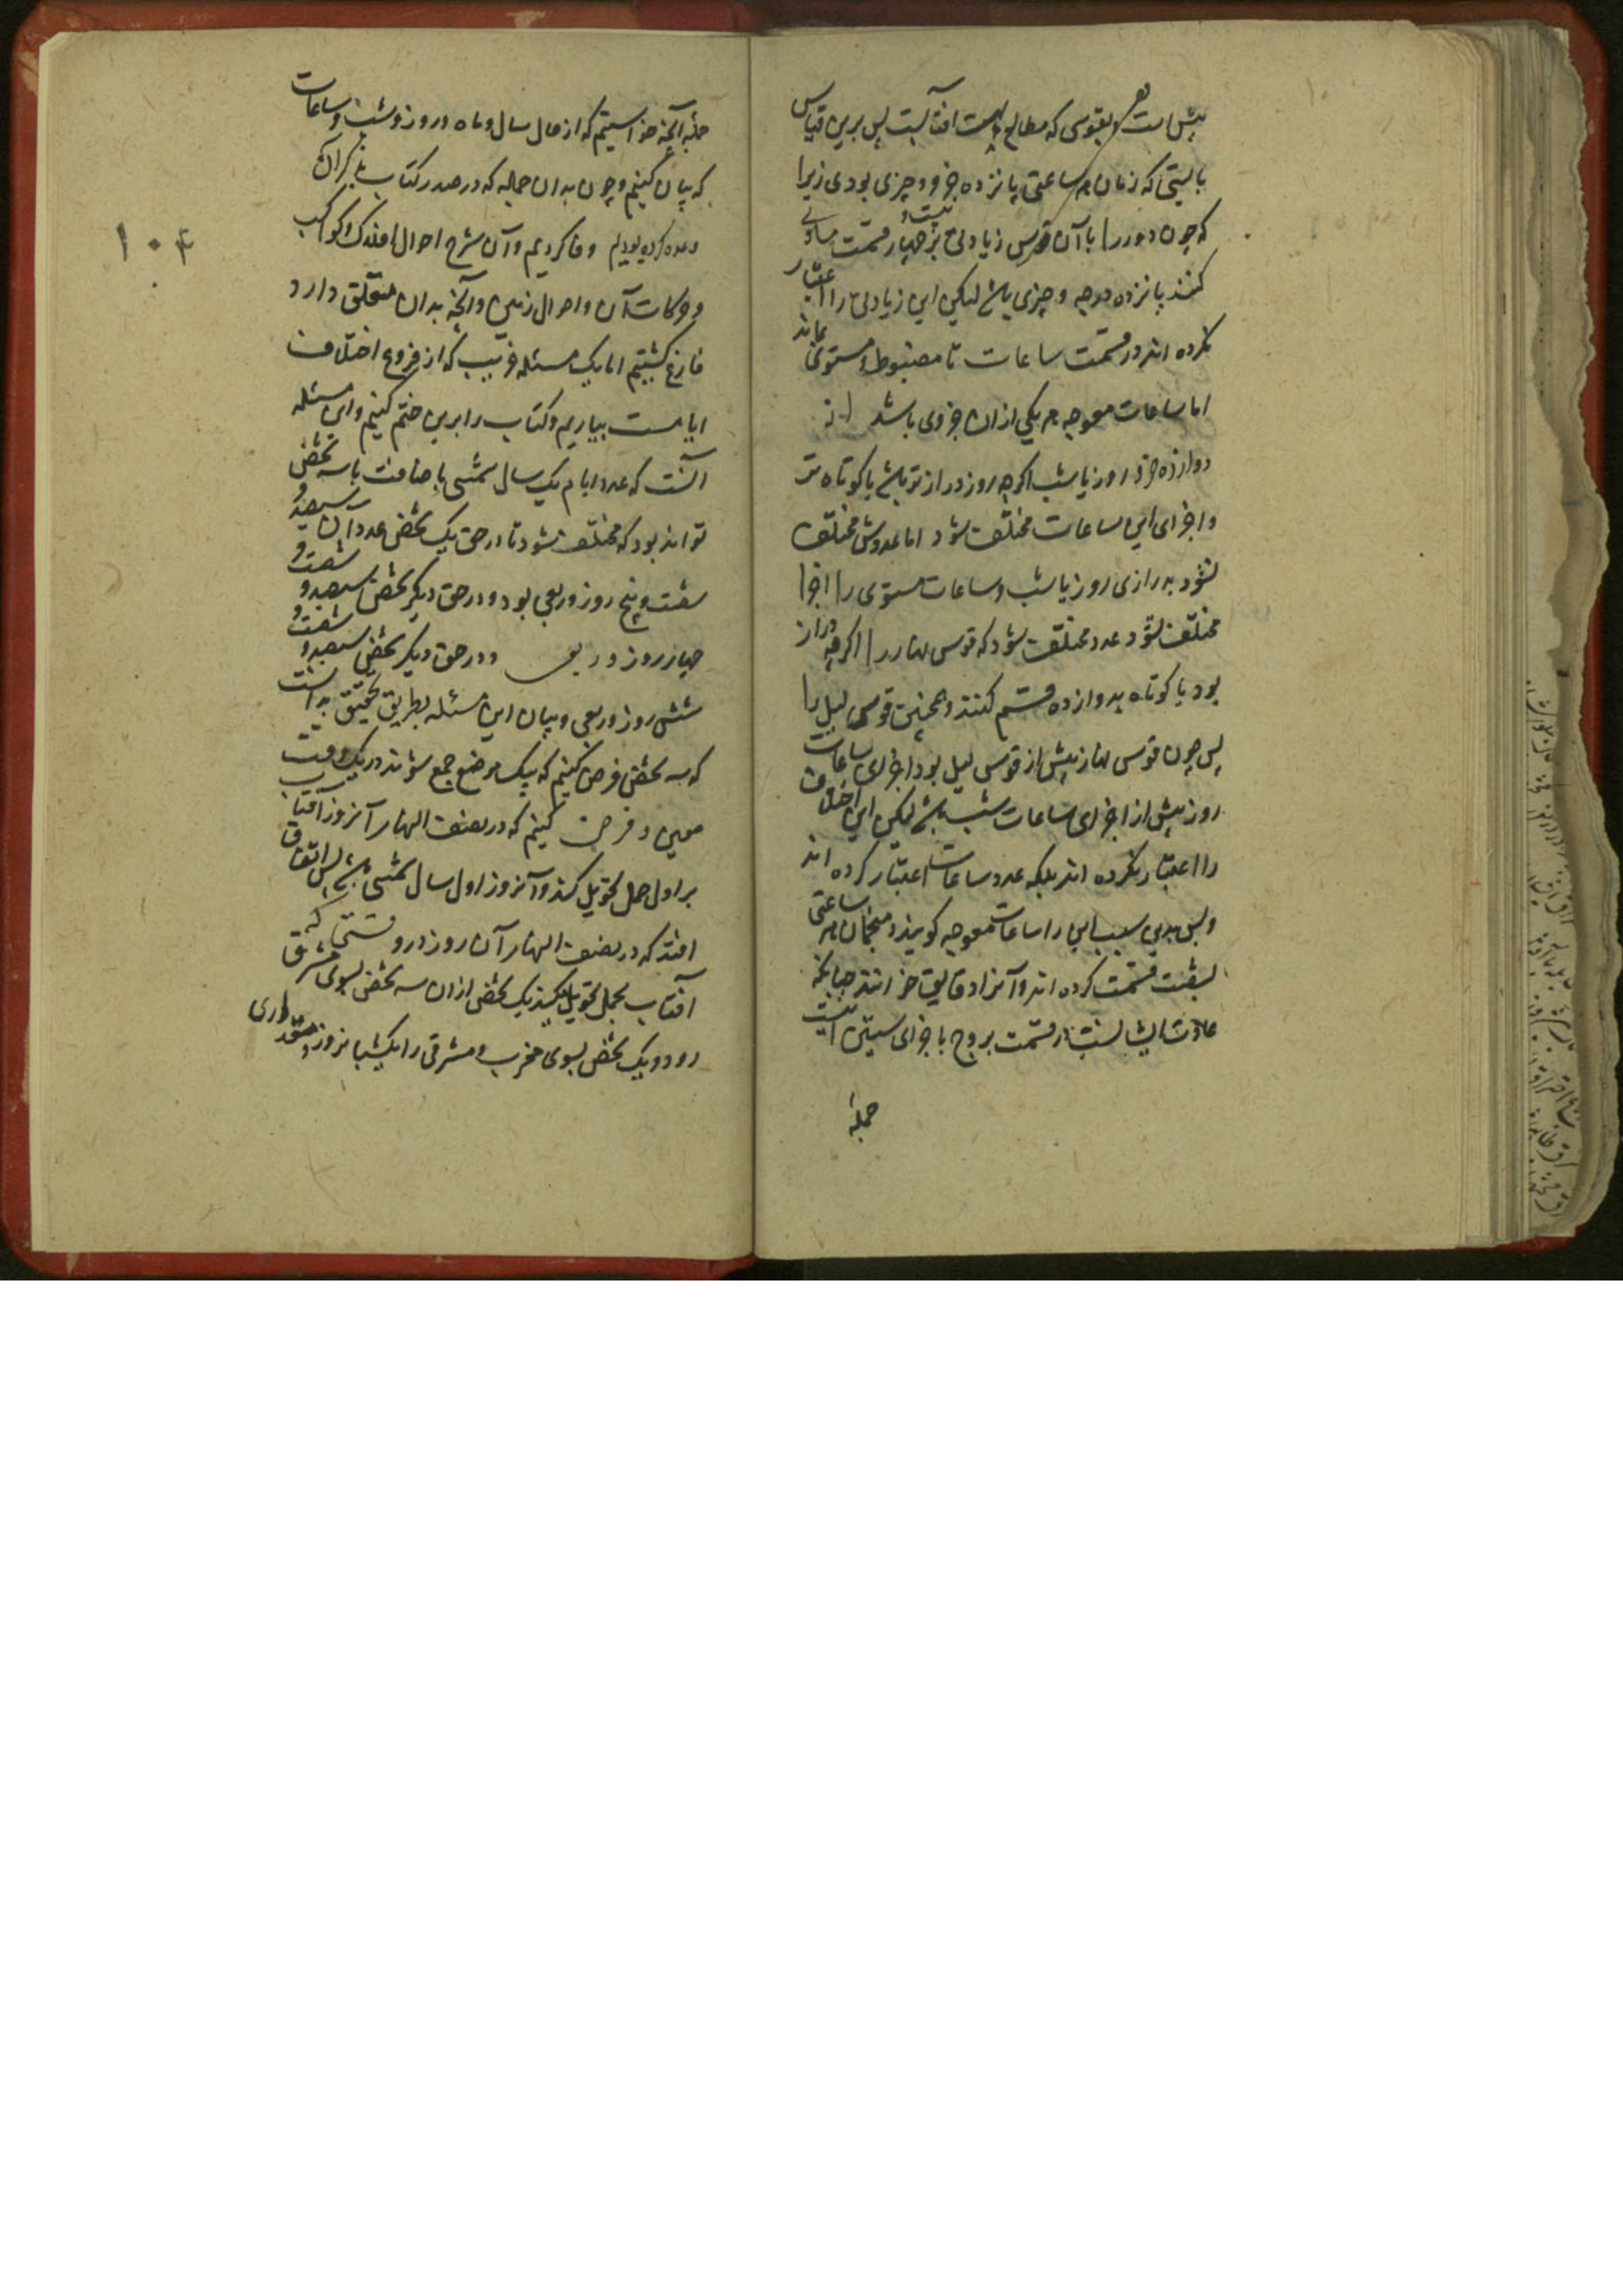 بیش است بقوسی که مطالع بهت آفتابست پس برین قیاس
بایستی که زمان هر ساعتی پانزده جزو و چیزی بودی زیرا
که چون دور را با آن قوس زیادتی بر بیست و چهار قسمت مساوی
کنند پانزده درجه و چیزی باشد لیکن این زیادتی را اعتبار
نکرده اند در قسمت ساعات تا مضبوط و مستوی بماند
اما ساعات معوجه هر یکی ازان جزوی باشد از
دوازده جزو روز یا شب اگرچه روز درازتر باشد یا کوتاه تر
و اجزای این ساعات مختلف شود اما عددش مختلف
نشود به درازی روز یا شب و ساعات مستوی را اجزا
مختلف نشود عدد مختلف شود که قوس نهار را اگرچه دراز
بود یا کوتاه بدوازده قسم کنند و همچنین قوس لیل را
پس چون قوس نهار بیش از قوس لیل بود اجزای ساعات
روز بیش از اجزای ساعات شب باشد لیکن این اختلاف
را اعتبار نکرده اند بلکه عدد ساعات اعتبار کرده اند
و بس بدین سبب این را ساعات معوجه گویند و منجمان هر ساعتی
بشصت قسمت کرده اند و آنرا دقایق خوانند چنانکه
عادت ایشانست در قسمت بروج باجزای ستینی اینست
جمله
۱۰۴
جمله آنچه خواستیم که از حال سال و ماه و روز و شب و ساعات
که بیان کنیم و چون بدان جمله که در صدر کتاب بذکر آن
وعده کرده بودیم وفا کردیم و آن شرح احوال افلاک و کواکب
و حرکات آن و احوال زمین و آنچه بدان متعلق دارد
فارغ گشتیم اما یک مسئله غریب که از فروع اختلاف
ایامست بیاریم و کتاب را برین ختم کنیم و این مسئله
آنست که عدد ایام یک سال شمسی باضافت با سه شخص
تواند بود که مختلف شود تا در حق یک شخص عدد آن سیصد و
شصت و پنج روز و ربعی بود و در حق دیگر شخص سیصد و شصت و
چهار روز و ربعی و در حق دیگر شخص سیصد و شصت و
شش روز و ربعی و بیان این مسئله بطریق تحقیق بدانست
که سه شخص فرض کنیم که بیک موضع جمع شوند در یک وقت
معین و فرض کنیم که در نصف النهار آنروز آفتاب
بر اول حمل تحویل کند و آنروز اول سال شمسی باشد پس اتفاق
افتد که در نصف النهار آن روز در وقتی که
آفتاب بحمل تحویل میکند یک شخص ازان سه شخص بسوی مشرق
رود و یک شخص بسوی مغرب و مشرقی را یکشبانروز مقداری